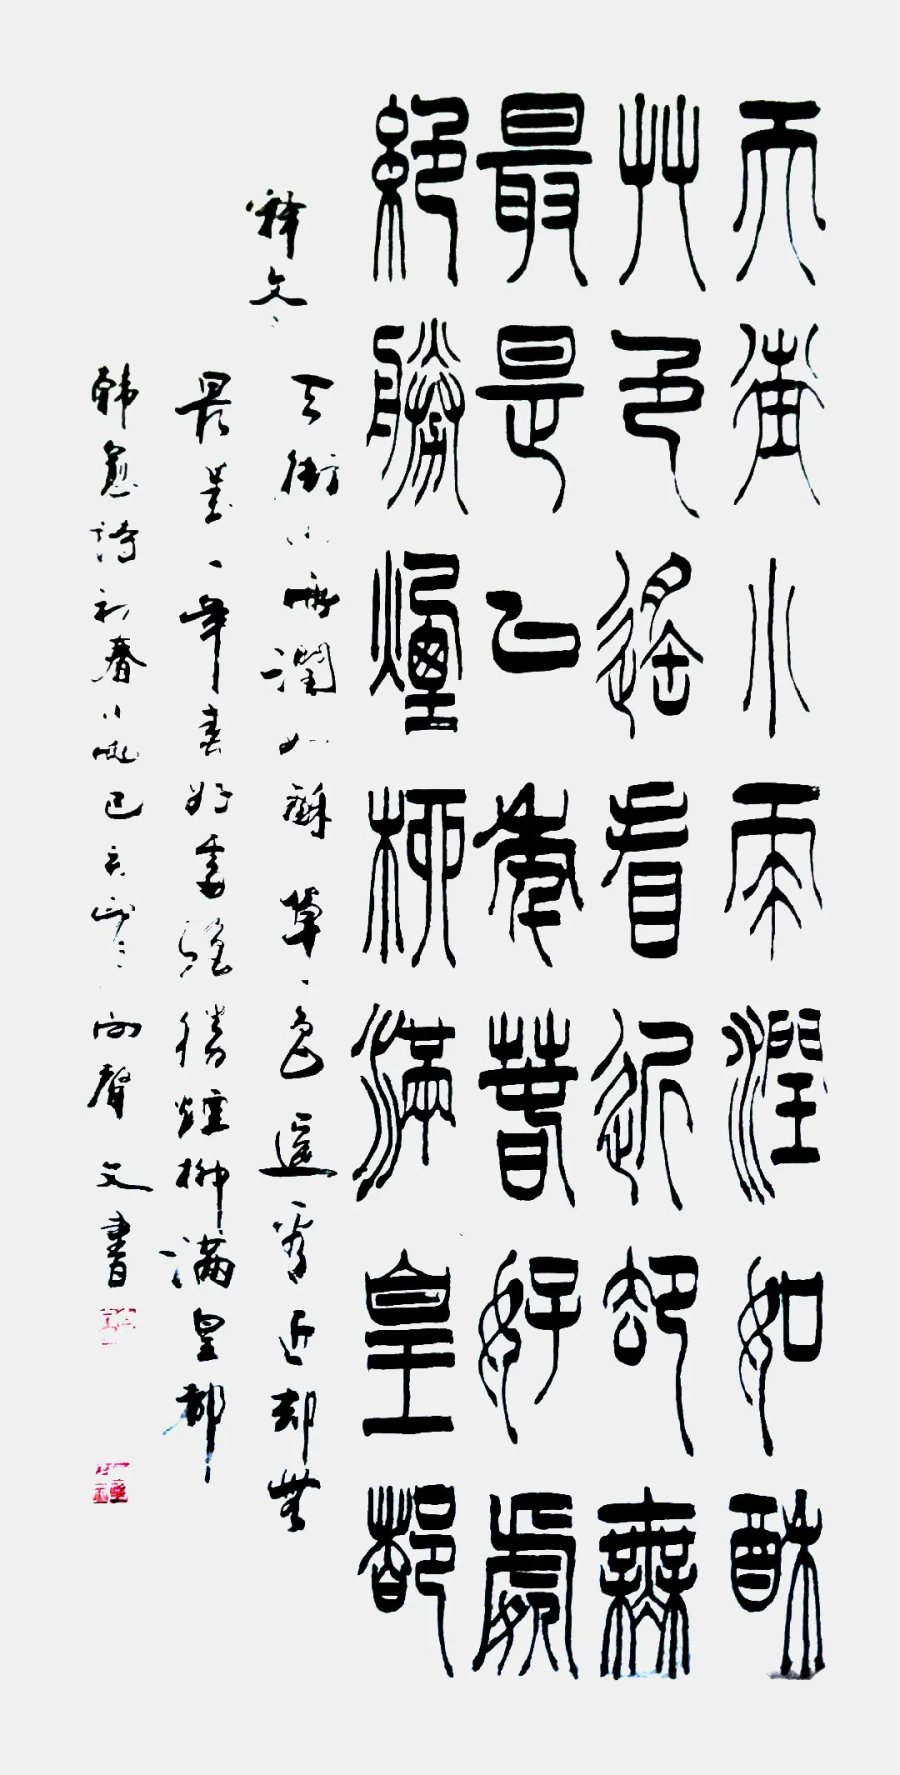 天街小雨潤如酥
艸色遙看近卻無
最是一年春好處
絕勝煙柳滿皇都
释文
天街小雨潤如酥草色遙看近却無
最是一年春好處絕勝煙柳滿皇都
韓愈詩初春小雨己亥歲冬聲文書